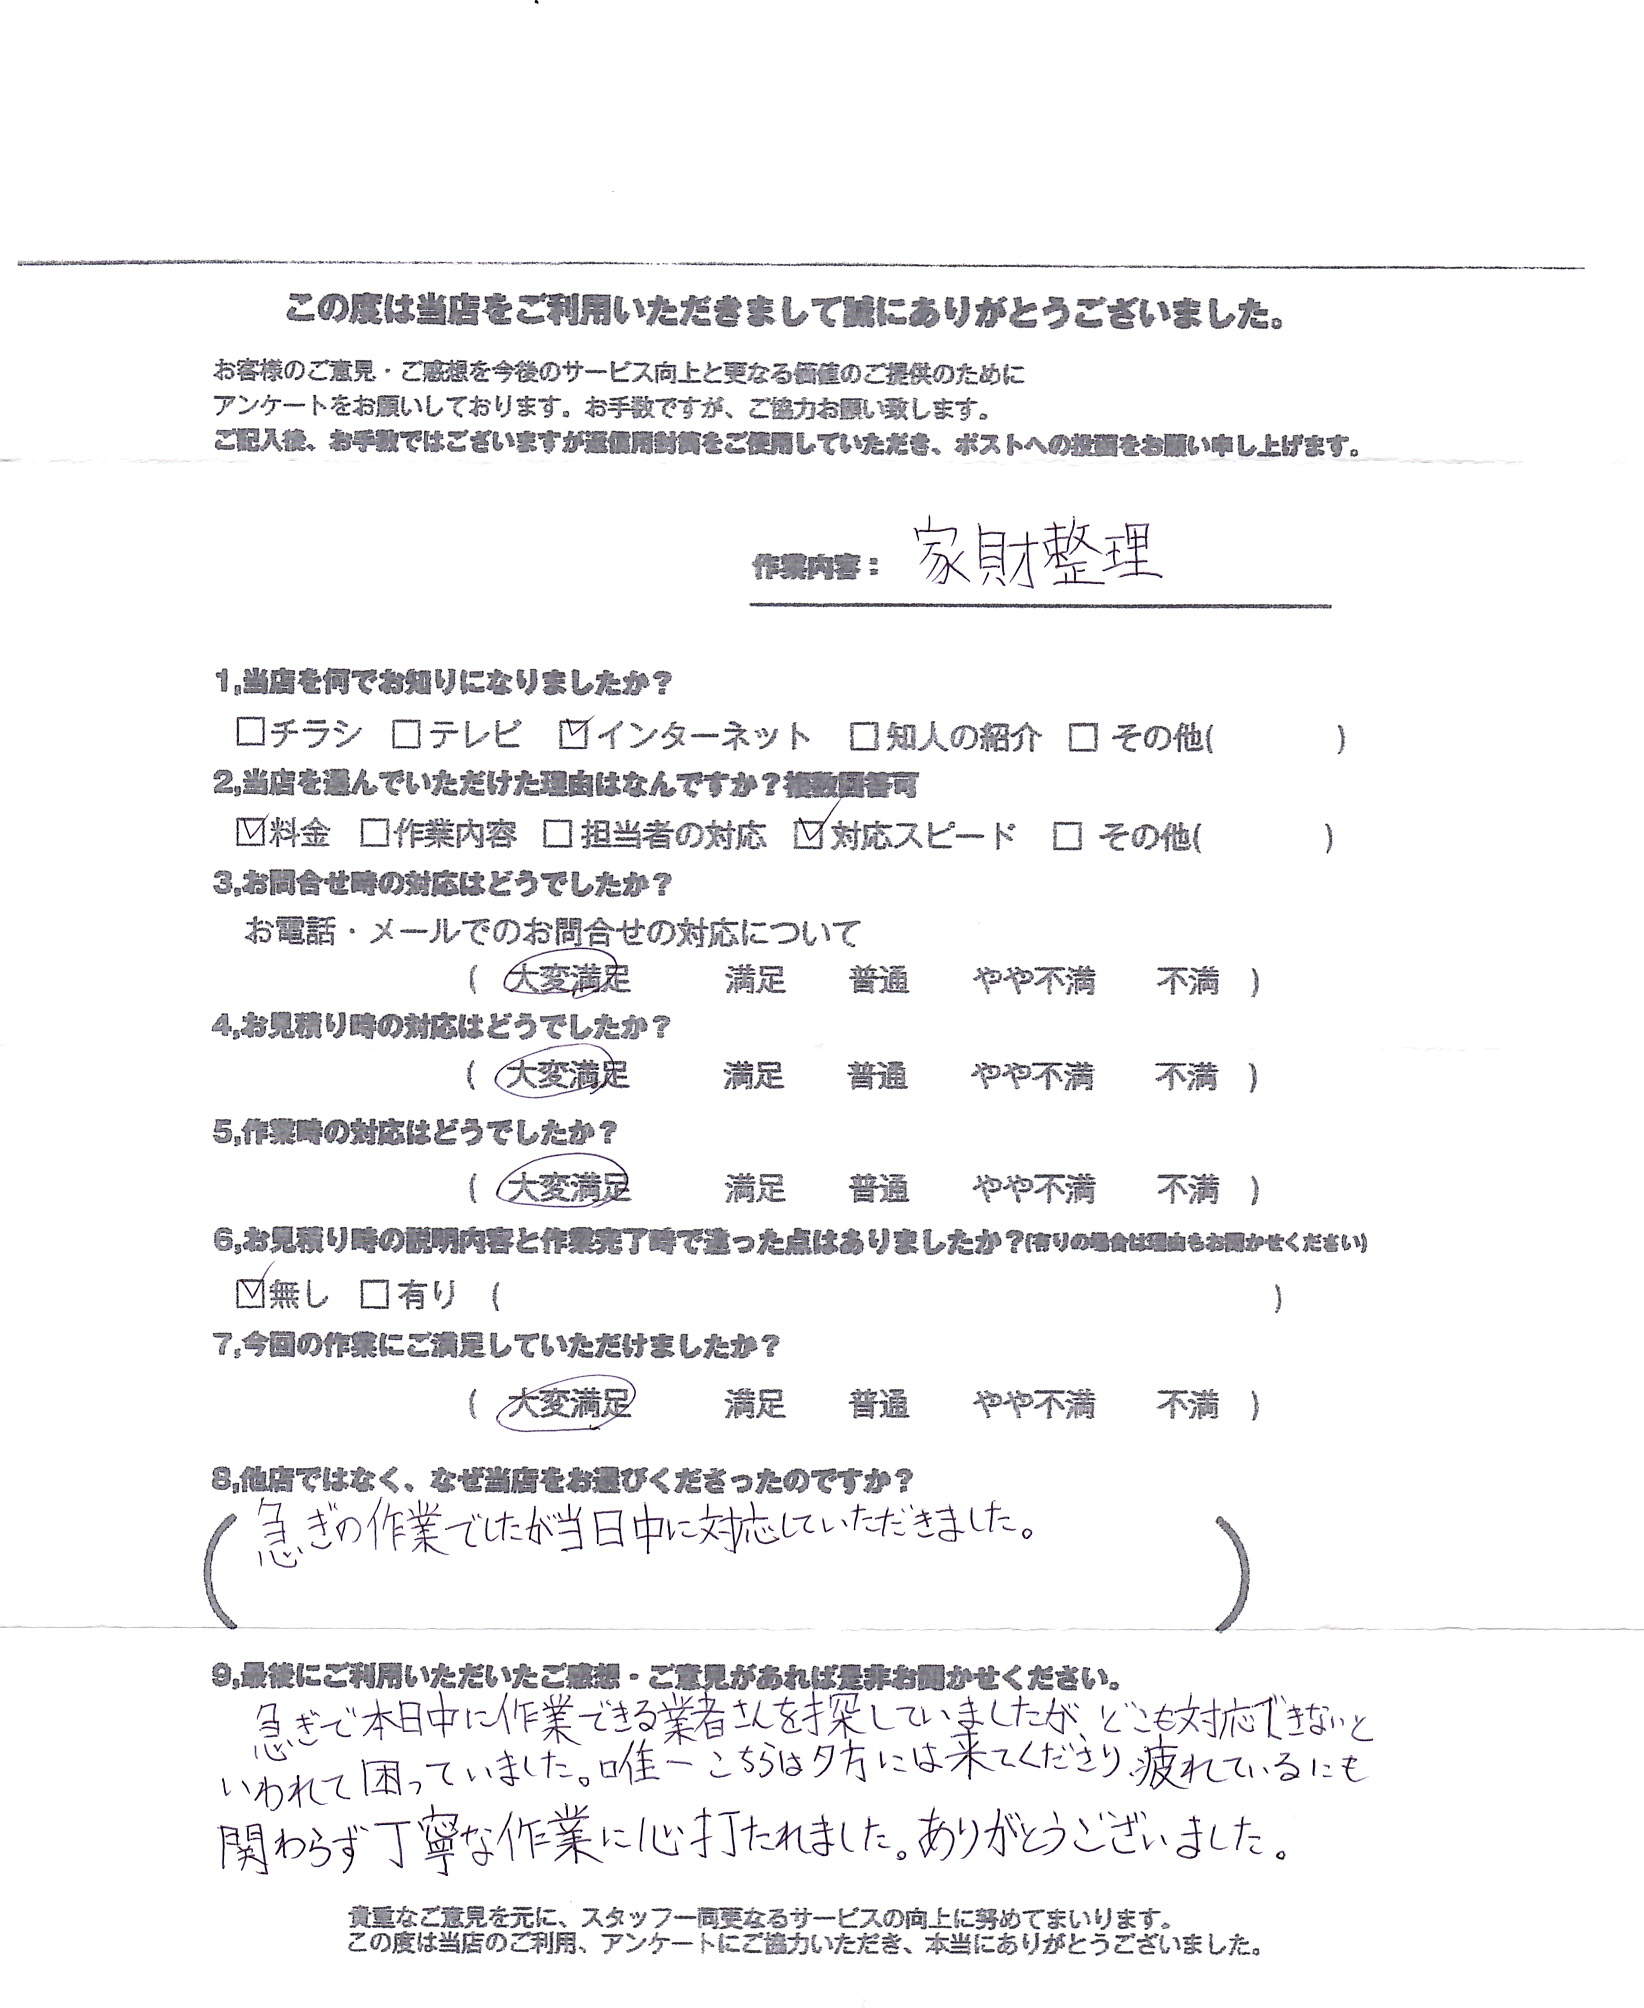 この度は当店をご利用いただきまして誠にありがとうございました。
お客様のご意見・ご感想を今後のサービス向上と更なる価値のご提供のために
アンケートをお願いしております。お手数ですが、ご協力お願い致します。
ご記入後、お手数ではございますが返信用封筒をご使用していただき、ポストへの投函をお願い申し上げます。
作業内容： 家財整理
1,当店を何でお知りになりましたか？
□チラシ □テレビ ☑インターネット □知人の紹介 □その他( )
2,当店を選んでいただけた理由はなんですか？複数回答可
☑料金 □作業内容 □担当者の対応 ☑対応スピード □その他( )
3,お問合せ時の対応はどうでしたか？
お電話・メールでのお問合せの対応について
( 大変満足 満足 普通 やや不満 不満 )
4,お見積り時の対応はどうでしたか？
( 大変満足 満足 普通 やや不満 不満 )
5,作業時の対応はどうでしたか？
( 大変満足 満足 普通 やや不満 不満 )
6,お見積り時の説明内容と作業完了時で違った点はありましたか？(有りの場合は理由もお聞かせください)
☑無し □有り ( )
7,今回の作業にご満足していただけましたか？
( 大変満足 満足 普通 やや不満 不満 )
8,他店ではなく、なぜ当店をお選びくださったのですか？
(急ぎの作業でしたが当日中に対応していただきました。)
9,最後にご利用いただいたご感想・ご意見があれば是非お聞かせください。
急ぎで本日中に作業できる業者さんを探していましたが、どこも対応できないと
いわれて困っていました。唯一こちらは夕方には来てくださり、疲れているにも
関わらず丁寧な作業に心打たれました。ありがとうございました。
貴重なご意見を元に、スタッフ一同更なるサービスの向上に努めてまいります。
この度は当店のご利用、アンケートにご協力いただき、本当にありがとうございました。